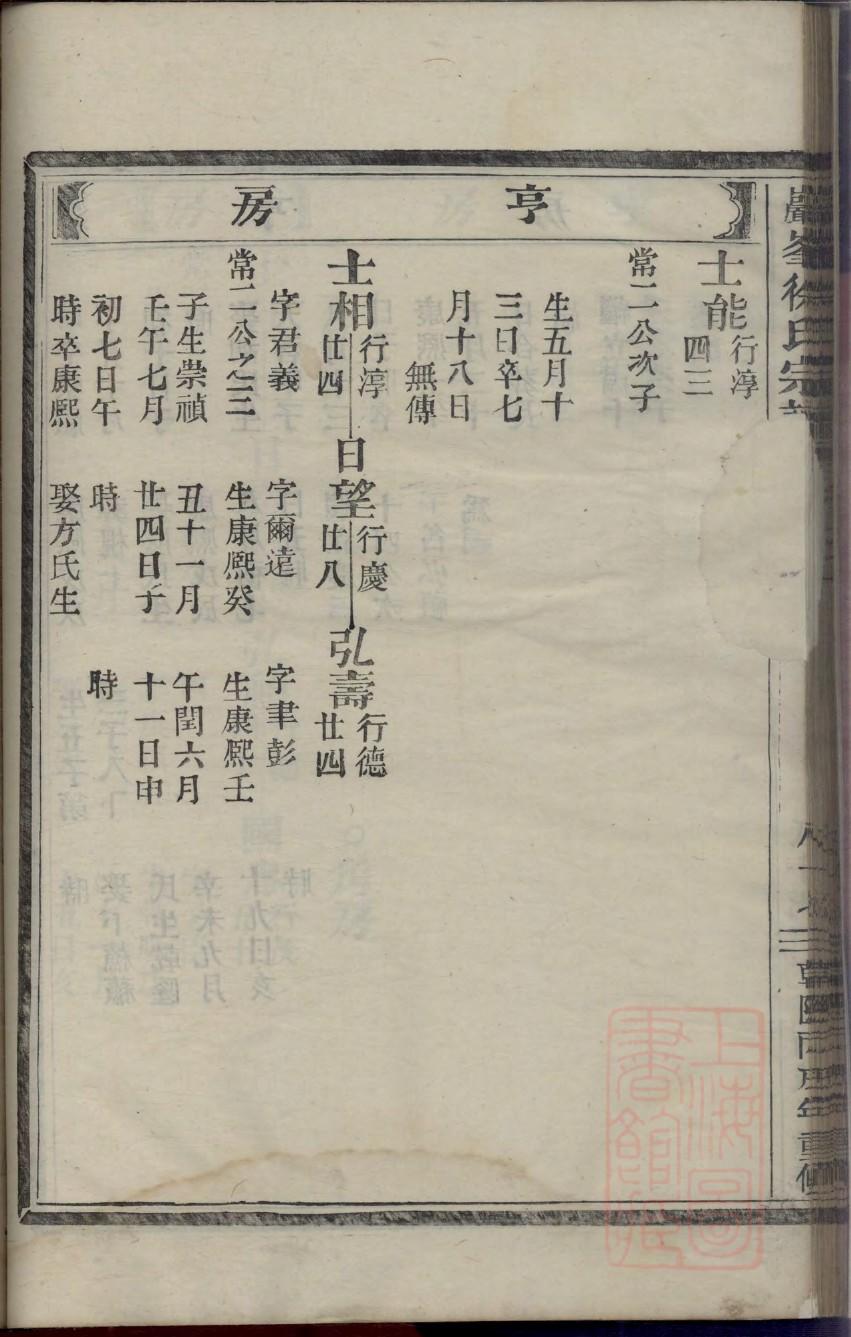 巖峯徐氏宗
亨房
士能行淳四三
常二公次子
生五月十
三日卒七
月十八日
無傳
士相行淳廿四
字君義
常二公之三
子生崇禎
壬午七月
初七日午
時卒康熙
日望行慶廿八
字爾遠
生康熙癸
丑十一月
廿四日子
時
娶方氏生
弘壽行德廿四
字聿彭
生康熙壬
午閏六月
十一日申
時
重修
上海圖書館藏